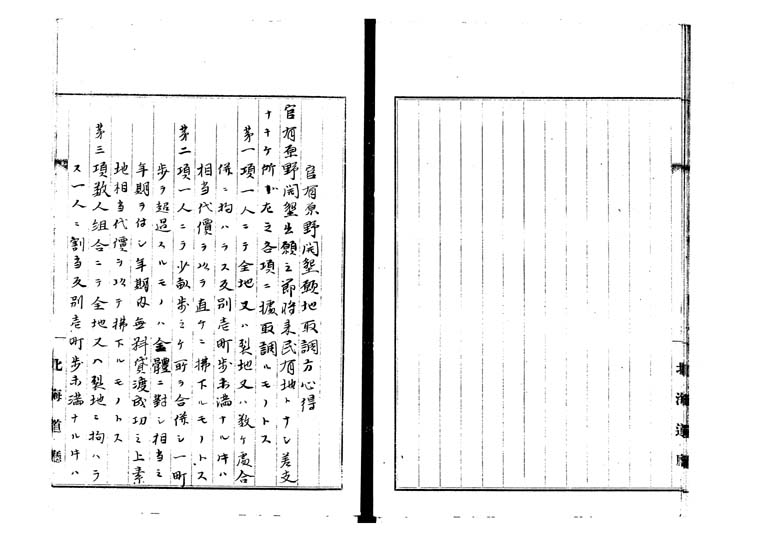 官有原野開墾願地取調方心得
官有原野開墾出願之節将来民有地トナシ差支
ナキケ所ハ左之各項ニ據取調ルモノトス
第一項一人ニテ全地又ハ裂地又ハ数ケ處合
併ニ拘ハラス反別壱町歩未満ナル片ハ
相当代價ヲ以テ直ケニ拂下ルモノトス
第二項一人ニテ少畝歩之ケ所ヲ合併シ一町
歩ヲ超過スルモノハ全體ニ對シ相当之
年期ヲ付シ年期内無料貸渡成功之上素
地相当代價ヲ以テ拂下ルモノトス
第三項数人組合ニテ全地又ハ裂地ニ拘ハラ
ス一人ニ割当反別壱町歩未満ナル片ハ
北海道廳
北海道廳